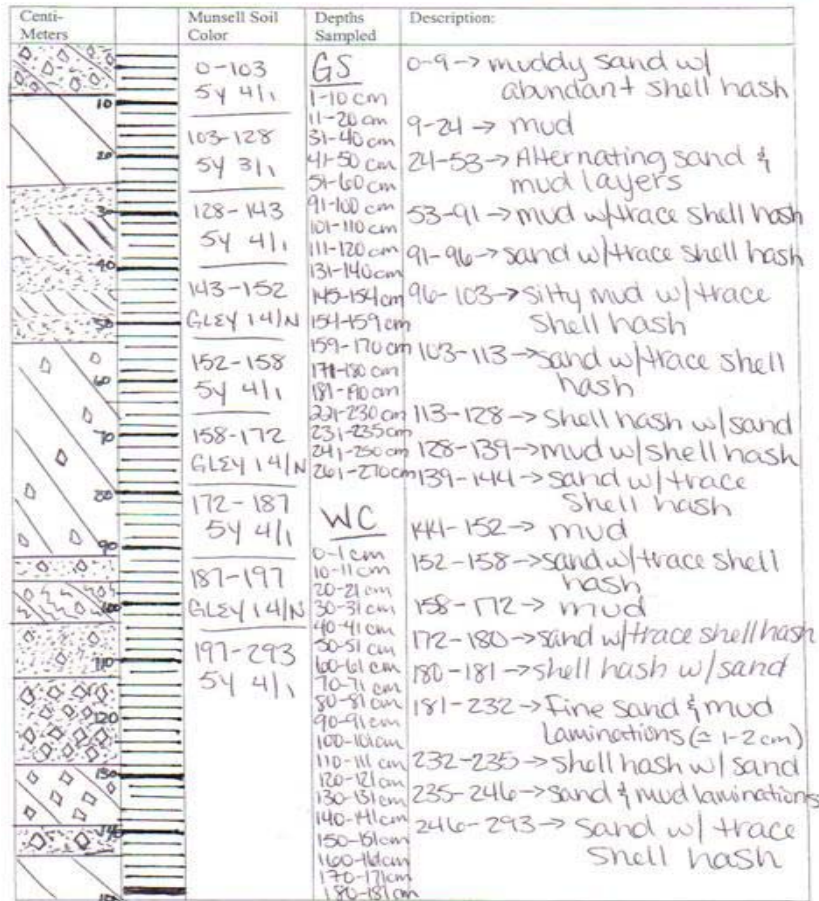 Centi-
Meters
Munsell Soil
Color
Depths
Sampled
Description:
10
20
30
40
50
60
70
80
90
100
110
120
130
140
0-103
5Y 4/1
103-128
5Y 3/1
128-143
5Y 4/1
143-152
GLEY 1 4/N
152-158
5Y 4/1
158-172
GLEY 1 4/N
172-187
5Y 4/1
187-197
GLEY 1 4/N
197-293
5Y 4/1
GS
1-10 cm
11-20 cm
31-40 cm
41-50 cm
51-60 cm
91-100 cm
101-110 cm
111-120 cm
131-140 cm
145-154 cm
154-159 cm
159-170 cm
171-180 cm
181-190 cm
221-230 cm
231-235 cm
241-250 cm
261-270 cm
WC
0-1 cm
10-11 cm
20-21 cm
30-31 cm
40-41 cm
50-51 cm
60-61 cm
70-71 cm
80-81 cm
90-91 cm
100-101 cm
110-111 cm
120-121 cm
130-131 cm
140-141 cm
150-151 cm
160-161 cm
170-171 cm
180-181 cm
0-9 → muddy sand w/
abundant shell hash
9-24 → mud
24-53 → Alternating sand &
mud layers
53-91 → mud w/trace shell hash
91-96 → sand w/trace shell hash
96-103 → silty mud w/trace
shell hash
103-113 → sand w/trace shell
hash
113-128 → shell hash w/sand
128-139 → mud w/shell hash
139-144 → sand w/trace
shell hash
144-152 → mud
152-158 → sand w/trace shell
hash
158-172 → mud
172-180 → sand w/trace shell hash
180-181 → shell hash w/sand
181-232 → Fine sand & mud
laminations (≃ 1-2 cm)
232-235 → shell hash w/ sand
235-246 → sand & mud laminations
246-293 → sand w/ trace
shell hash